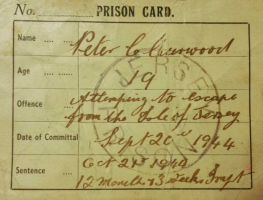 No. PRISON CARD.
Name Peter C. Curwood
Age 19
Offence Attempting to escape
from the Isle of Jersey
Date of Committal Sept 20th 1944
Oct 21st 1944
Sentence
12 Months & 3 Weeks Impt
JERSEY